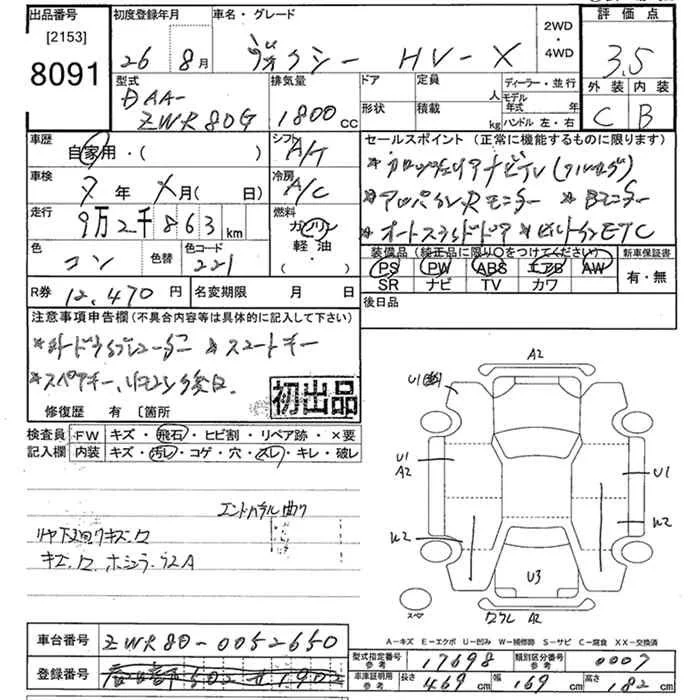 出品番号
[2153]
8091
初度登録年月
26年 8月
車名・グレード
ヴォクシー HV-X
2WD
・
4WD
評価点
3.5
外装 内装
C B
型式
DAA-
ZWR80G
排気量
1800 cc
ドア
形状
定員
人
積載
kg
ディーラー・並行
モデル年式 年
ハンドル 左・右
車歴
自家用・( )
シフト
A/T
車検
年 月( 日)
冷房
A/C
走行
9万2千863 km
燃料
ガソリン
軽油
( ・ )
色
コン
色替
色コード
221
R券 12,470 円
名変期限 月 日
セールスポイント (正常に機能するものに限ります)
*カロッツェリアナビTV(フルセグ)
*アルパインRモニター *Bモニター
*オートスライドドア *ビルトインETC
装備品 (純正品に限り○をつけてください)
PS PW ABS エアB AW
SR ナビ TV カワ
新車保証書
有・無
後日品
注意事項申告欄 (不具合内容等は具体的に記入して下さい)
*スマートキー
*スペアキー、リモコン後日
初出品
修復歴 有 〔箇所
検査員 FW キズ・飛石・ヒビ割・リペア跡・×要
記入欄 内装 キズ・汚レ・コゲ・穴・スレ・キレ・破レ
エンドパネル曲り
リヤ下廻りキズ、ワ
A2
U1
U1
A2
U1
W2
W2
U3
スペア
A2
A-キズ E-エクボ U-凹み W-補修跡 S-サビ C-腐食 XX-交換済
車台番号 ZWR80-0052650
登録番号
型式指定番号
参考
17698
類別区分番号
参考
0007
車庫証明用
参考
長さ 469 cm 幅 169 cm 高さ 182 cm